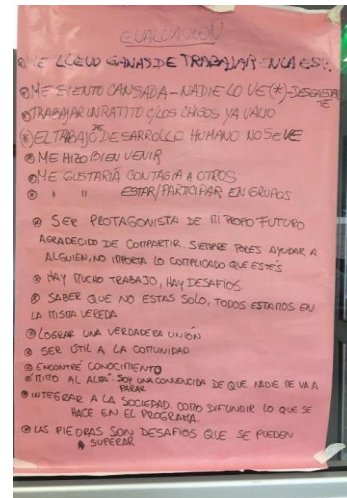 EVALUACIÓN
ME LLEVO GANAS DE TRABAJAR EN LA ESC.
ME SIENTO CANSADA - NADIE LO VE (*) - DESGASTA
TE
TRABAJAR UN RATITO C/LOS CHICOS YA VALIO
*) EL TRABAJO DE DESARROLLO HUMANO NO SE VE
ME HIZO BIEN VENIR
ME GUSTARÍA CONTAGIA A OTROS
" " ESTAR/PARTICIPAR EN GRUPOS
SER PROTAGONISTA DE MI PROPIO FUTURO
AGRADECIDO DE COMPARTIR. SIEMPRE PODES AYUDAR A
ALGUIEN, NO IMPORTA LO COMPLICADO QUE ESTÉS
HAY MUCHO TRABAJO, HAY DESAFIOS
SABER QUE NO ESTAS SOLO, TODOS ESTAMOS EN
LA MISMA VEREDA
LOGRAR UNA VERDADERA UNIÓN
SER ÚTIL A LA COMUNIDAD
ENCONTRÉ CONOCIMIENTO
"MITO AL ALTA" SOY UNA CONVENCIDA DE QUE NADIE ME VA A
PARAR
INTEGRAR A LA SOCIEDAD. COMO DIFUNDIR LO QUE SE
HACE EN EL PROGRAMA.
LAS PIEDRAS SON DESAFIOS QUE SE PUEDEN
SUPERAR